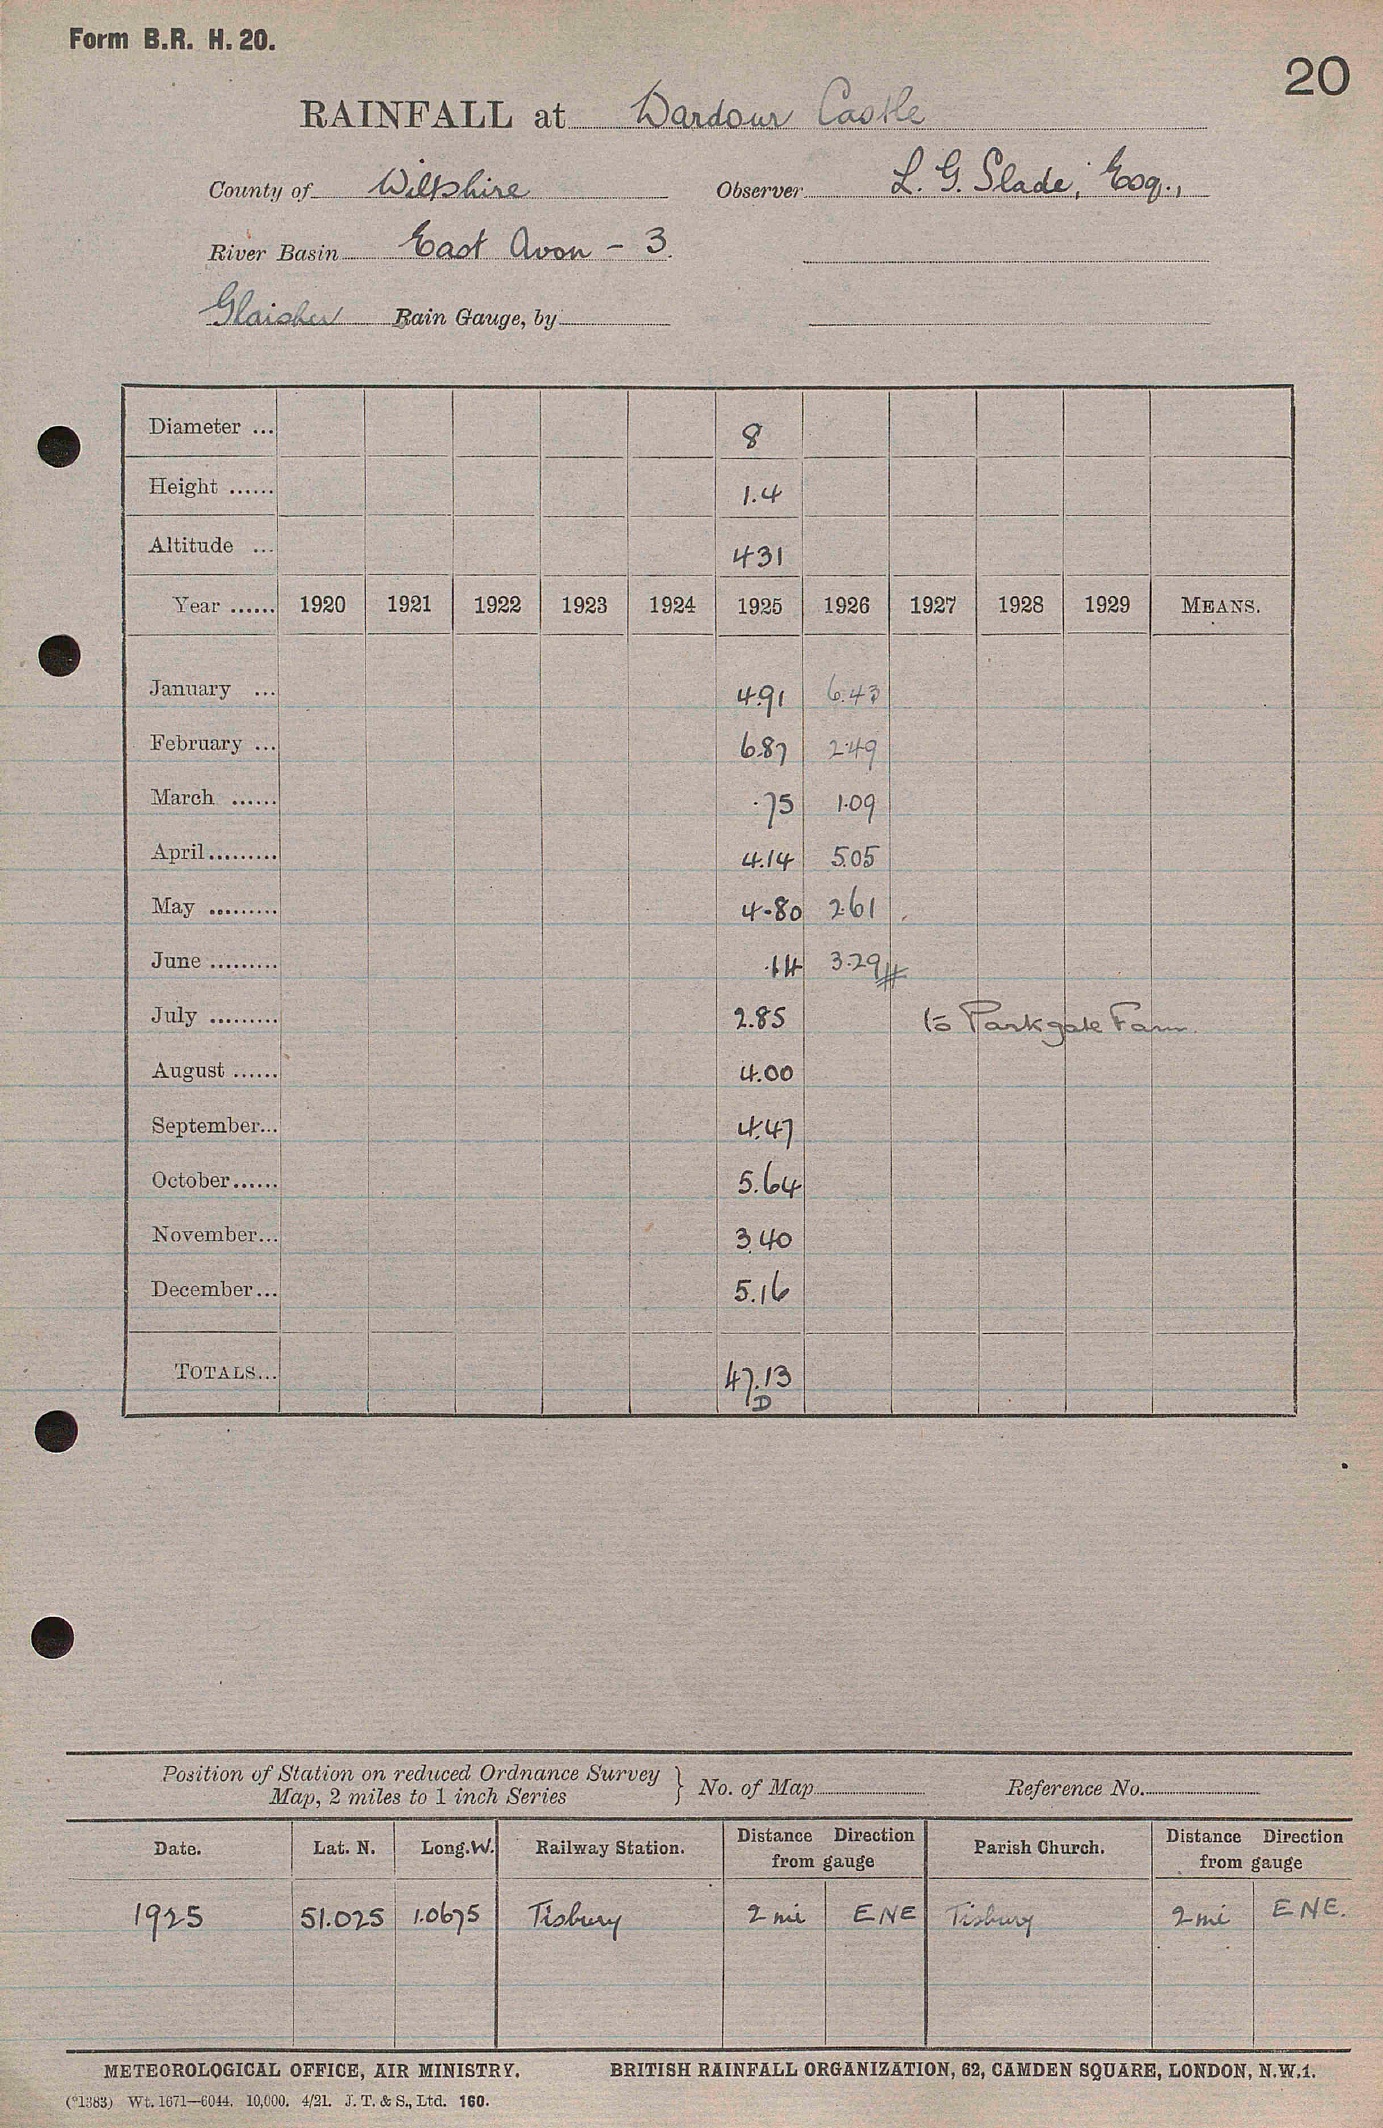 Form B.R. H. 20.
20
RAINFALL at Wardour Castle
County of Wiltshire Observer L. G. Slade, Esq.,
River Basin East Avon - 3.
Glaisher Rain Gauge, by
Diameter ... 8
Height ...... 1.4
Altitude ... 431
Year ...... 1920 1921 1922 1923 1924 1925 1926 1927 1928 1929 MEANS.
January ... 4.91 6.43
February ... 6.87 2.49
March ...... .75 1.09
April......... 4.14 5.05
May ......... 4.80 2.61
June ......... .14 3.29
July ......... 2.85 to Parkgate Farm
August ...... 4.00
September... 4.47
October...... 5.64
November... 3.40
December... 5.16
TOTALS... 47.13
D
Position of Station on reduced Ordnance Survey
Map, 2 miles to 1 inch Series } No. of Map Reference No.
Date. Lat. N. Long. W. Railway Station. Distance Direction from gauge Parish Church. Distance Direction from gauge
1925 51.025 1.0675 Tisbury 2 mi ENE Tisbury 2 mi ENE.
METEOROLOGICAL OFFICE, AIR MINISTRY. BRITISH RAINFALL ORGANIZATION, 62, CAMDEN SQUARE, LONDON, N.W.1.
(*1383) Wt. 1671—6044. 10,000. 4/21. J. T. & S., Ltd. 160.